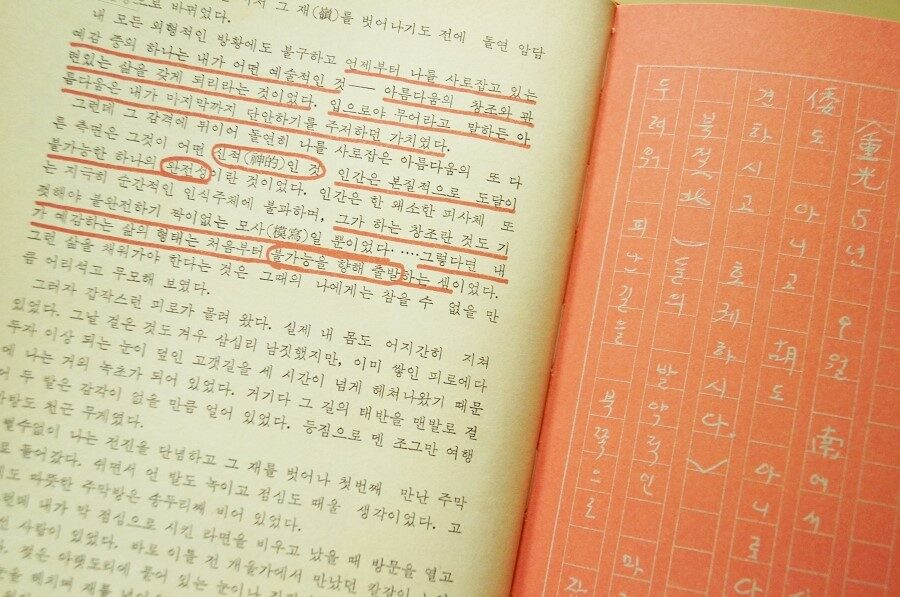 그 재(嶺)를 벗어나기도 전에 돌연 암담
으로 바뀌었다.
내 모든 외형적인 방황에도 불구하고 언제부터 나를 사로잡고 있는
예감 중의 하나는 내가 어떤 예술적인 것── 아름다움의 창조와 관
련있는 삶을 갖게 되리라는 것이었다. 입으로야 무어라고 말하든 아
름다움은 내가 마지막까지 단안하기를 주저하던 가치였다.
그런데 그 감격에 뒤이어 돌연히 나를 사로잡은 아름다움의 또 다
른 측면은 그것이 어떤 신적(神的)인 것 인간은 본질적으로 도달이
불가능한 하나의 완전성이란 것이었다. 인간은 한 왜소한 피사체 또
는 지극히 순간적인 인식주체에 불과하며, 그가 하는 창조란 것도 기
껏해야 불완전하기 짝이없는 모사(模寫)일 뿐이었다. ……그렇다면 내
가 예감하는 삶의 형태는 처음부터 불가능을 향해 출발하는 셈이었다.
그런 삶을 채워가야 한다는 것은 그때의 나에게는 참을 수 없을 만
큼 어리석고 무모해 보였다.
그러자 갑작스런 피로가 몰려 왔다. 실제 내 몸도 어지간히 지쳐
있었다. 그날 걸은 것도 겨우 삼십리 남짓했지만, 이미 쌓인 피로에다
두자 이상 되는 눈이 덮인 고갯길을 세 시간이 넘게 헤쳐나왔기 때문
에 나는 거의 녹초가 되어 있었다. 거기다 그 길의 태반을 맨발로 걸
어 두 발은 감각이 없을 만큼 얼어 있었다. 등짐으로 멘 조그만 여행
가방도 천근 무게였다.
할수없이 나는 전진을 단념하고 그 재를 벗어나 첫번째 만난 주막
로 들어갔다. 쉬면서 언 발도 녹이고 점심도 때울 생각이었다. 고
도 따뜻한 주막방은 송두리째 비어 있었다.
런데 내가 막 점심으로 시킨 라면을 비우고 났을 때 방문을 열고
사람이 있었다. 바로 이틀 전 개울가에서 만났던 칼갈이
젖은 아랫도리에 묻어 있는 눈이나
을 헤치며 재를
(重光 15년 오월 南에서
倭도 아니고 胡도 아니로다
견하시고 호궤하시다.)
북적(北 )들의 발악적인 마
두려워 피난길을 북쪽으로